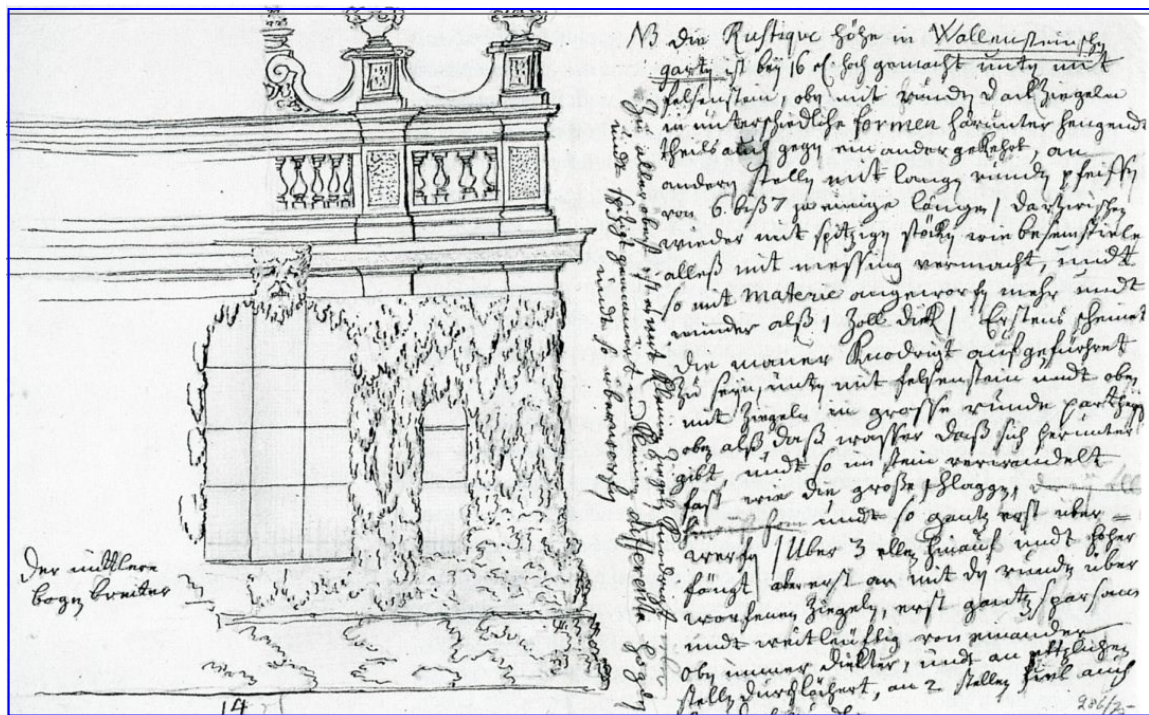 NB die Rustique höhe in Wallensteinschen
garten ist beÿ 16 el. hoch gemacht unten mit
felsenstein, oben mit runden dackziegeln
in unterschiedliche formen herunter hengendt
theils auch gegen einander gekehrt, an
andern stellen mit langen runden pfeiffen
von 6 biß 7 zo einige länger / darzwischen
wieder mit spitzigen stöcken wie besemstiele
alleß mit messing vermacht, undt
so mit materie angeworfen mehr undt
minder alß 1 Zoll dick / Erstens scheinet
die mauer Knodrigt aufgeführet
zu seyn, unten mit felsenstein undt oben
mit Ziegeln in grosse runde parthyen
oben alß daß wasser daß sich herunter
gibt, undt so in stein verwandelt
fast wie die große schlaggen,
undt so gantz erst uber=
werfen / Uber 3 ellen hinauf undt höher
fängt aber erst an mit den runden uber
worfenen Ziegeln, erst gantz sparsam
undt weitleuftig von einander
oben immer dickter, undt an etlichen
stellen durchlöchert, an 2 stellen siel auch
Zu aller oberst ist es mit kleinen Ziegeln
undt spitzig gemauert kleine differente högel
undt so uberworfen
der mittlere
bogen breiter
14
286/2-